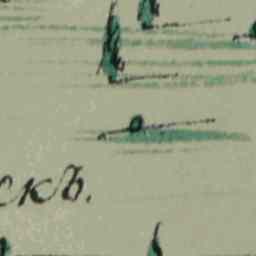 скъ.